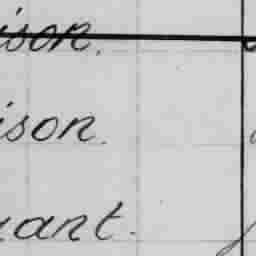 ison.
ison.
nant.